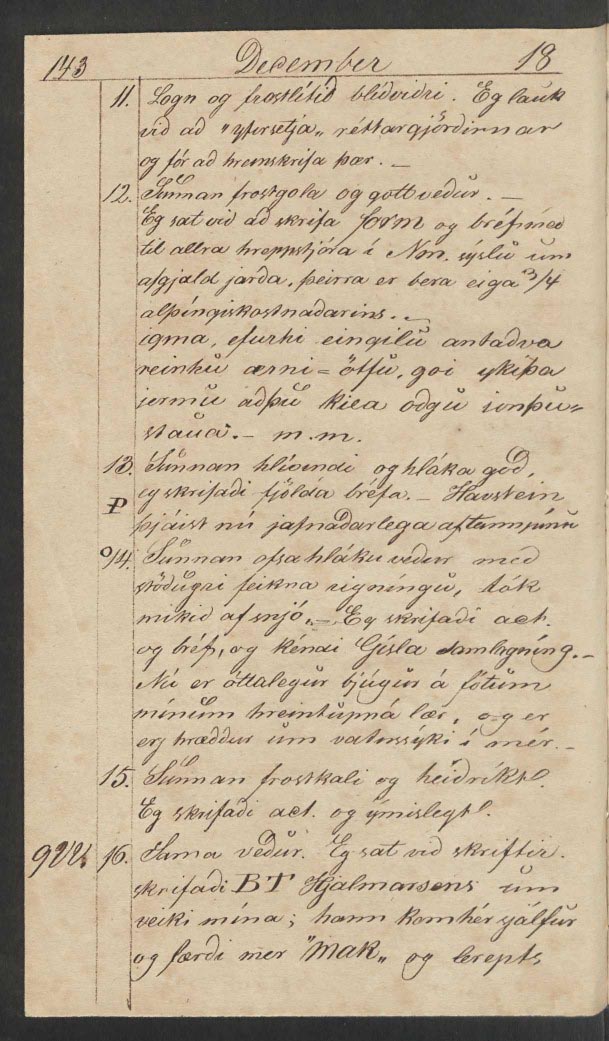 143 December 18
11. Logn og frostlitið blíðviðri. Eg lauk
við að "yfirsetja„ réttargjörðirnar
og fór að hreinskrifa þær. —
12. Sunnan frostgola og gott veður. —
Eg sat við að skrifa form og bréf með
til allra hreppstjóra í Nm. sýslu um
afgjald jarða, þeirra er bera eiga 3/4
alþíngiskostnaðarins. —
igma, efurhi eingilu antadva
reinhu ærni = ötfu, goi ykiþa
jermu aðþú kiea oðgu ionþu=
staua. — m. m.
13. Sunnan hlívindi og hláka góð,
eg skrifaði fjölda bréfa. — Havstein
P þjáist nú jafnaðarlega af tannpínu
14. Sunnan ofsa hláku veður með
stöðugri feikna rigníngu, tók
mikið af snjó. — Eg skrifaði act.
og bréf, og kéndi Gísla samlagníng. —
Nú er óttalegur bjúgur á fótum
mínum hreint upná lær, og er
eg hræddur um vatnssýki í mér. —
15. Sunnan frostkali og heiðríkt.
Eg skrifaði act. og ýmislegt.
922. 16. Sama veður. Eg sat við skriftir.
skrifaði BT Hjalmarsens um
veiki mína; hann kom hér sjálfur
og færði mer "Mak„ og Crepts